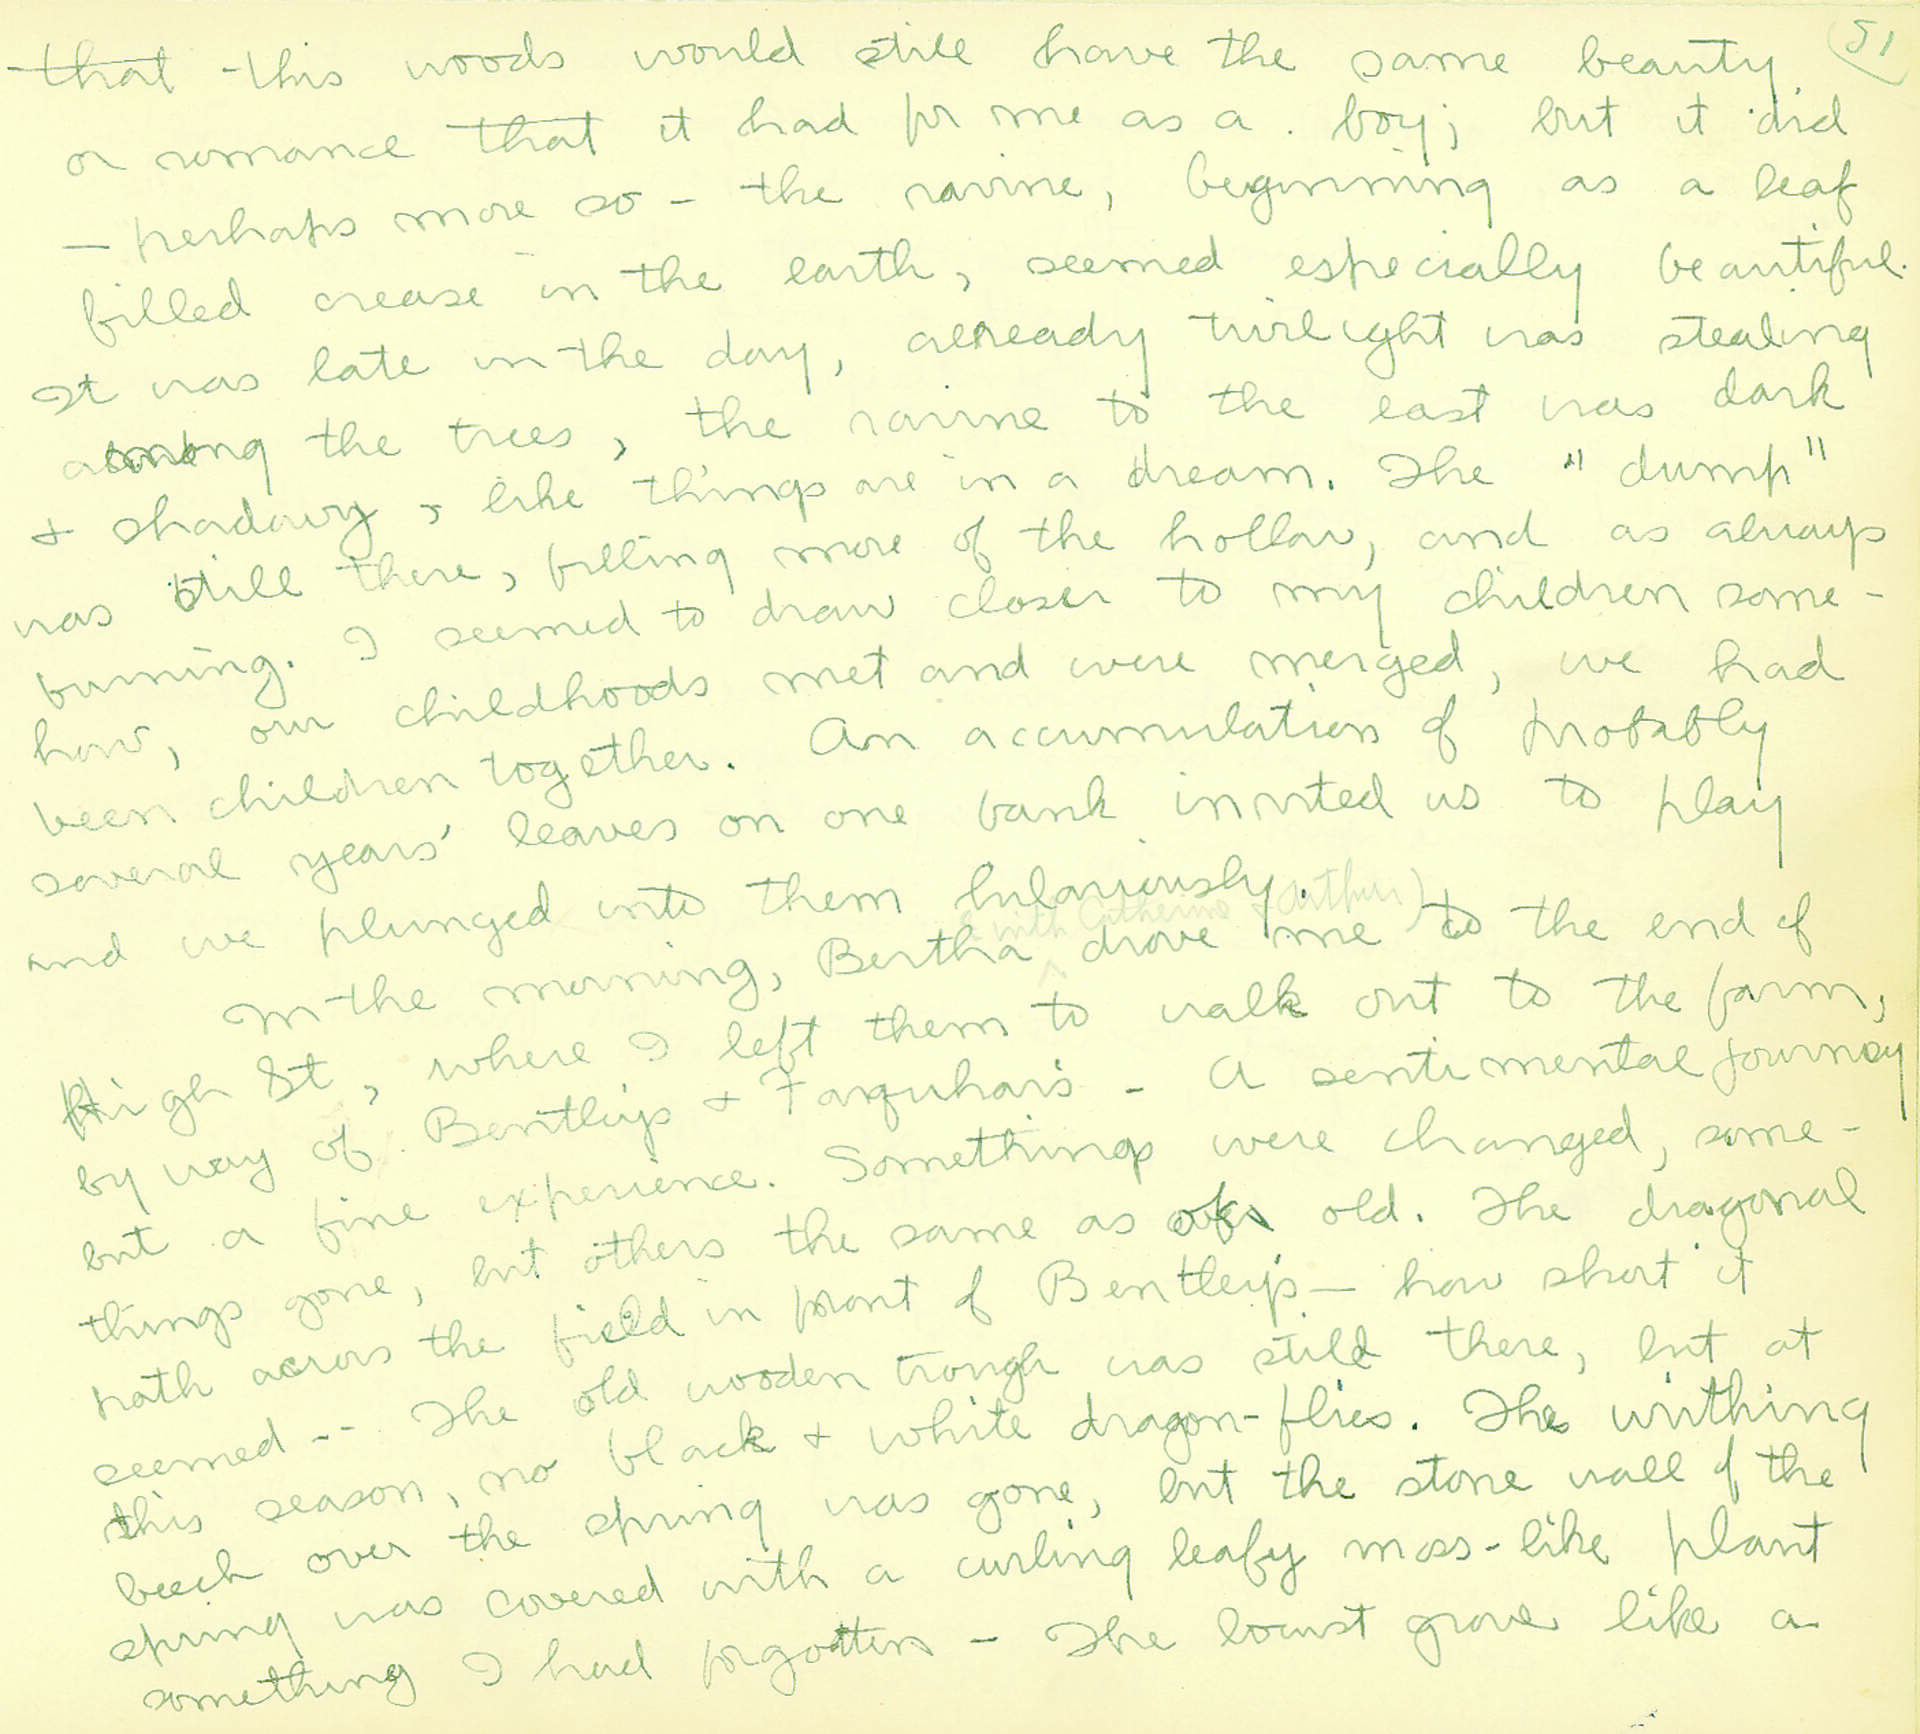 51
that this woods would still have the same beauty
or romance that it had for me as a boy; but it did
— perhaps more so - the ravine, beginning as a leaf
filled crease in the earth, seemed especially beautiful.
It was late in the day, already twilight was stealing
among the trees, the ravine to the east was dark
& shadowy, like things are in a dream. The "dump"
was still there, filling more of the hollow, and as always
burning. I seemed to draw closer to my children some-
how, our childhoods met and were merged, we had
been children together. An accumulation of probably
several years' leaves on one bank invited us to play
and we plunged into them hilariously.
(with Catherine & Arthur)
In the morning, Bertha drove me to the end of
High St, where I left them to walk out to the farm,
by way of Bentleys & Farquhar's - A sentimental journey
but a fine experience. Somethings were changed, some-
things gone, but others the same as of old. The diagonal
path across the field in front of Bentley's — how short it
seemed -- The old wooden trough was still there, but at
this season, no black & white dragon-flies. The writhing
beech over the spring was gone, but the stone wall of the
spring was covered with a curling leafy moss-like plant
something I had forgotten - The locust grove like a